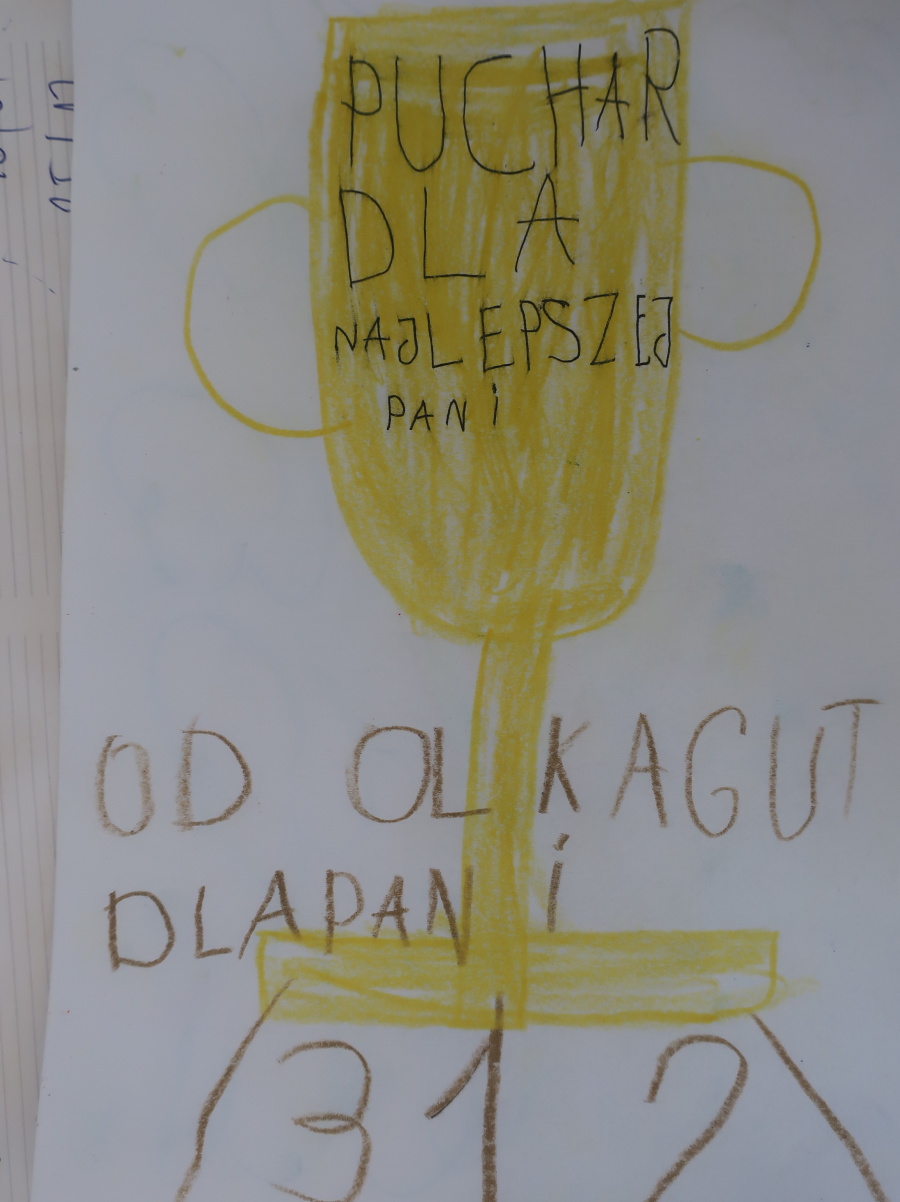 PUCHAR
DLA
NAJLEPSZEJ
PANi
OD OLKAGUT
DLAPANi
3 1 2